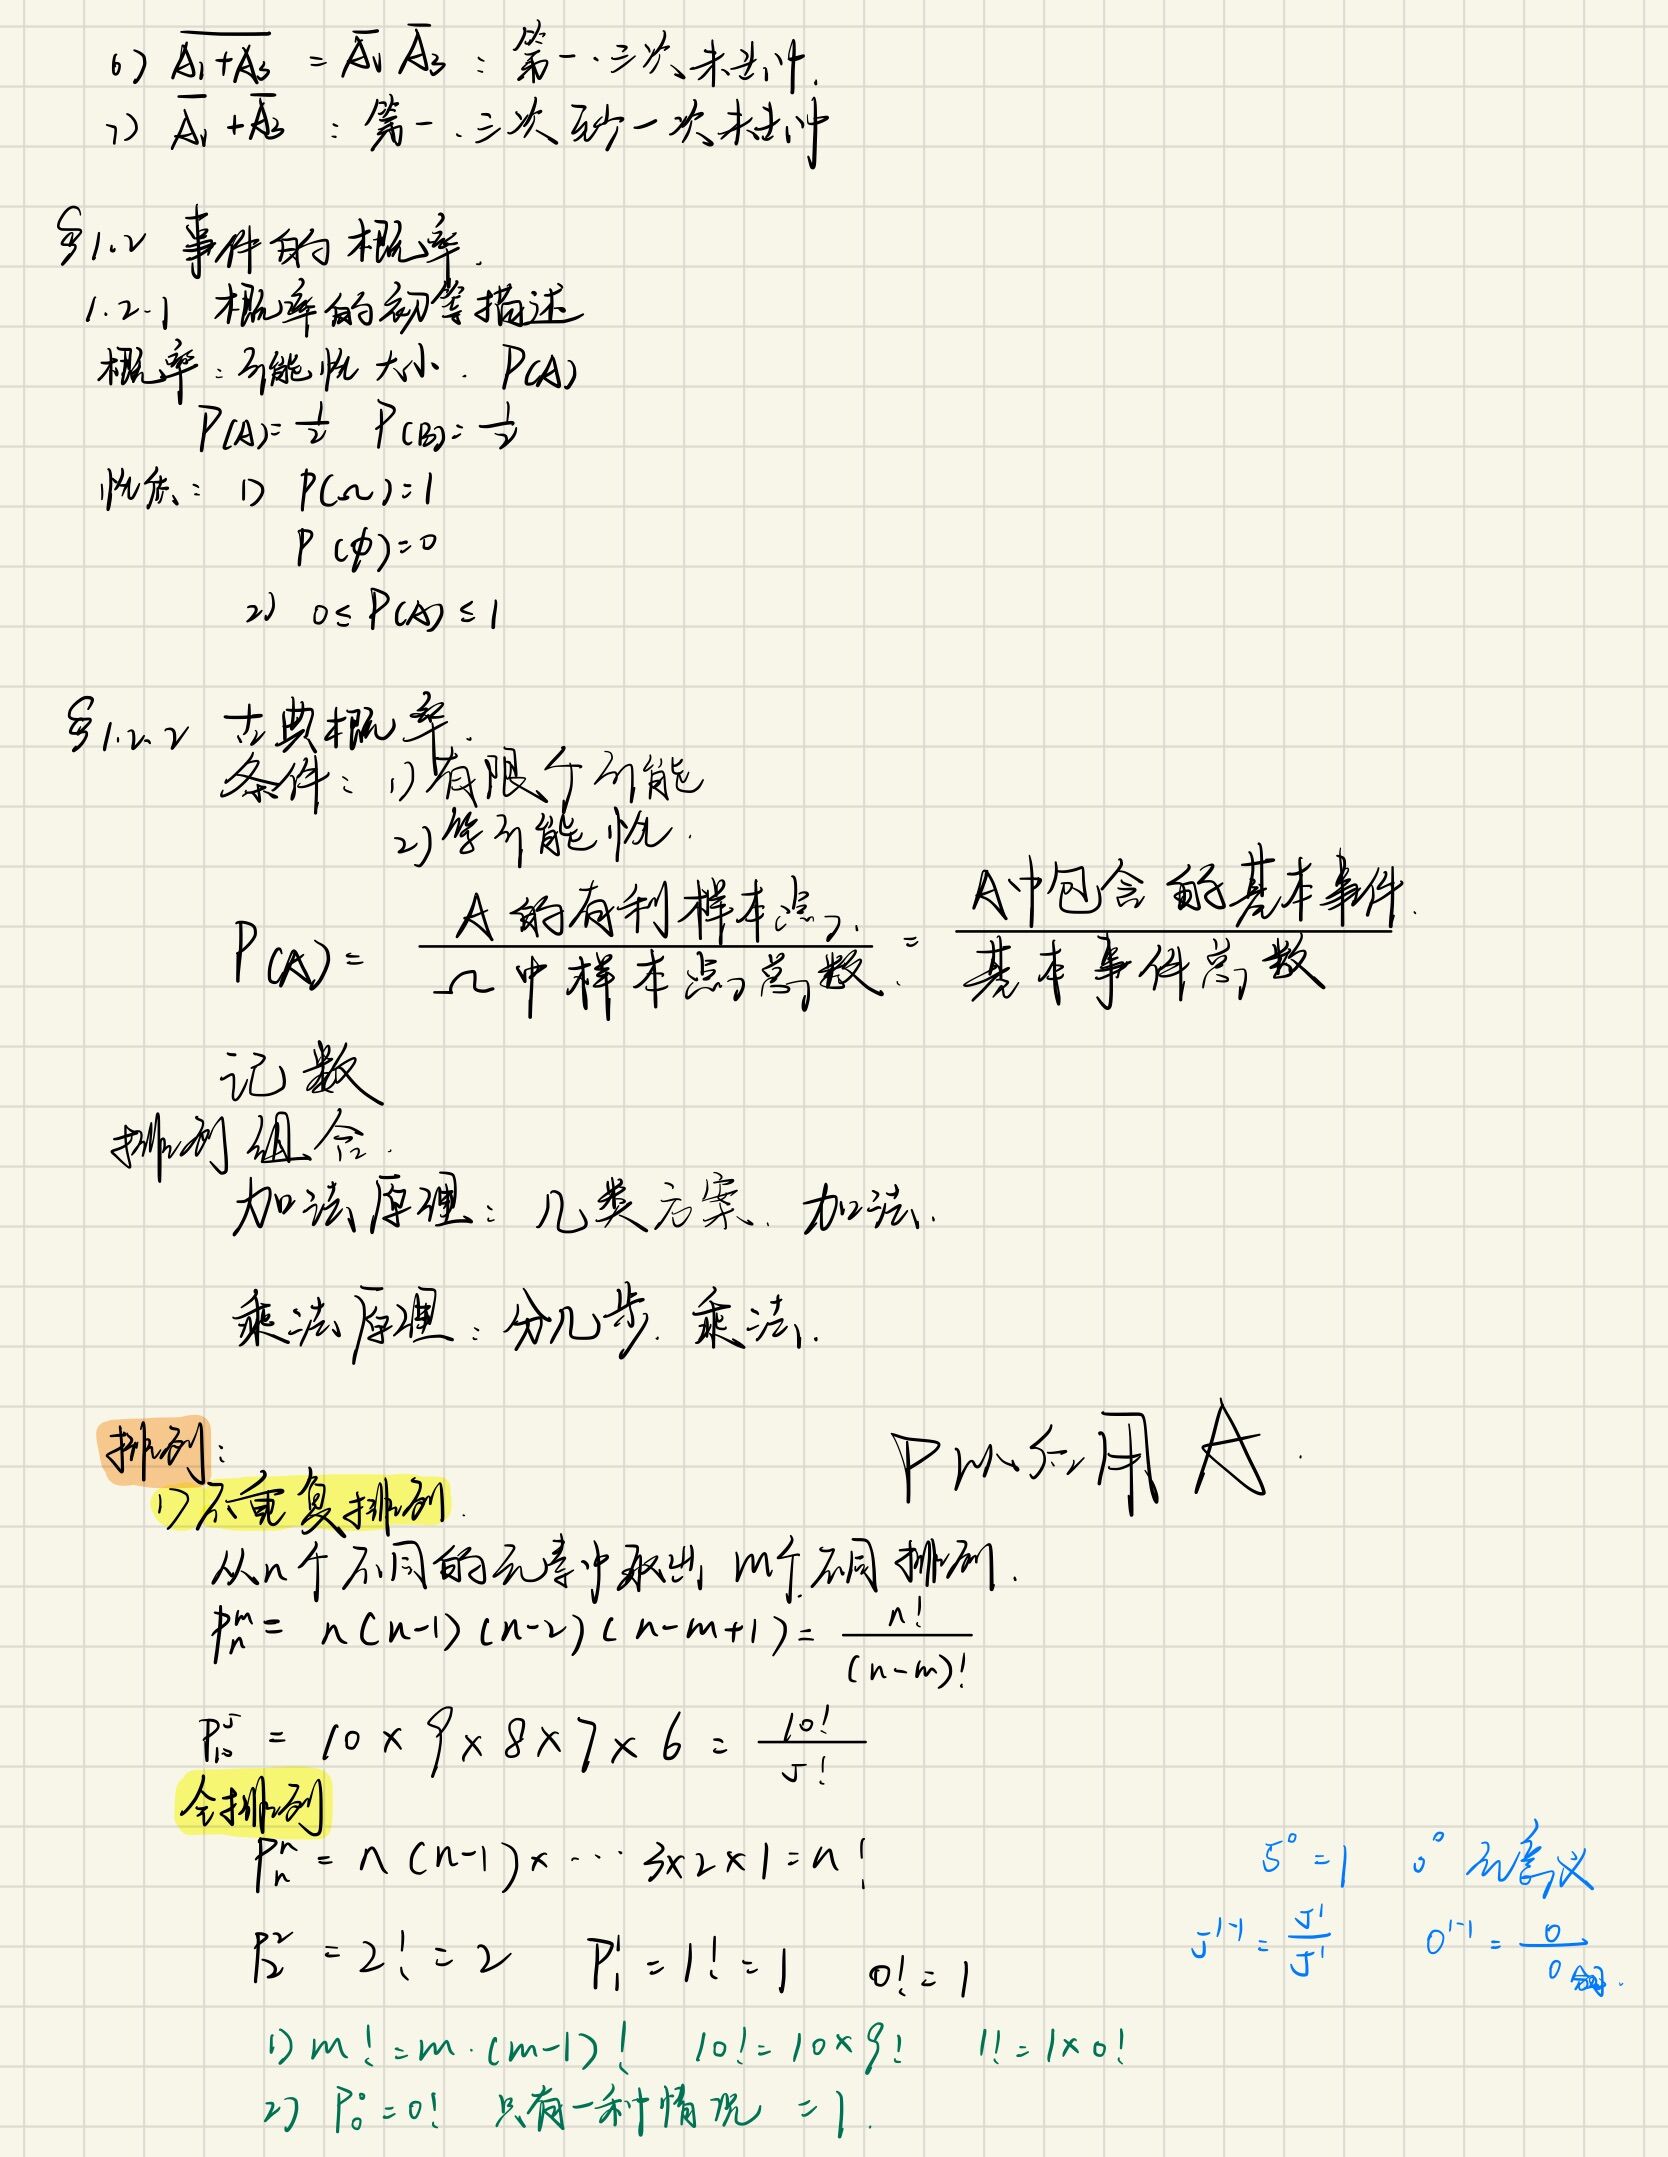 6) $\overline{A_1+A_3} = \overline{A_1}\,\overline{A_3}$ : 第一、三次未击中.
7) $\overline{A_1}+\overline{A_3}$ : 第一、三次至少一次未击中
§1.2 事件的概率.
1.2.1 概率的初等描述
概率: 可能性大小. P(A)
P(A)=1/2 P(B)=1/2
性质: 1) P(Ω)=1
P(φ)=0
2) 0≤P(A)≤1
§1.2.2 古典概率.
条件: 1) 有限个可能
2) 等可能性.
P(A) = $\frac{A的有利样本点.}{Ω中样本点总数.}$ = $\frac{A中包含的基本事件.}{基本事件总数}$
记数
排列组合.
加法原理: 几类方案. 加法.
乘法原理: 分几步. 乘法.
排列:
P 用 A.
1) 不重复排列.
从n个不同的元素中取出m个不同排列.
$P_n^m$ = n(n-1)(n-2)(n-m+1) = $\frac{n!}{(n-m)!}$
$P_{10}^5$ = 10×9×8×7×6 = $\frac{10!}{5!}$
全排列
$P_n^n$ = n(n-1)×···3×2×1=n!
$5^0$=1 $0^0$ 无意义
$P_2^2$ =2!=2 $P_1^1$ =1!=1 0!=1
$5^{1-1}$ = $\frac{5^1}{5^1}$ $0^{1-1}$ = $\frac{0}{0}$
1) m!=m·(m-1)! 10!=10×9! 1!=1×0!
2) $P_0^0$=0! 只有一种情况 =1.